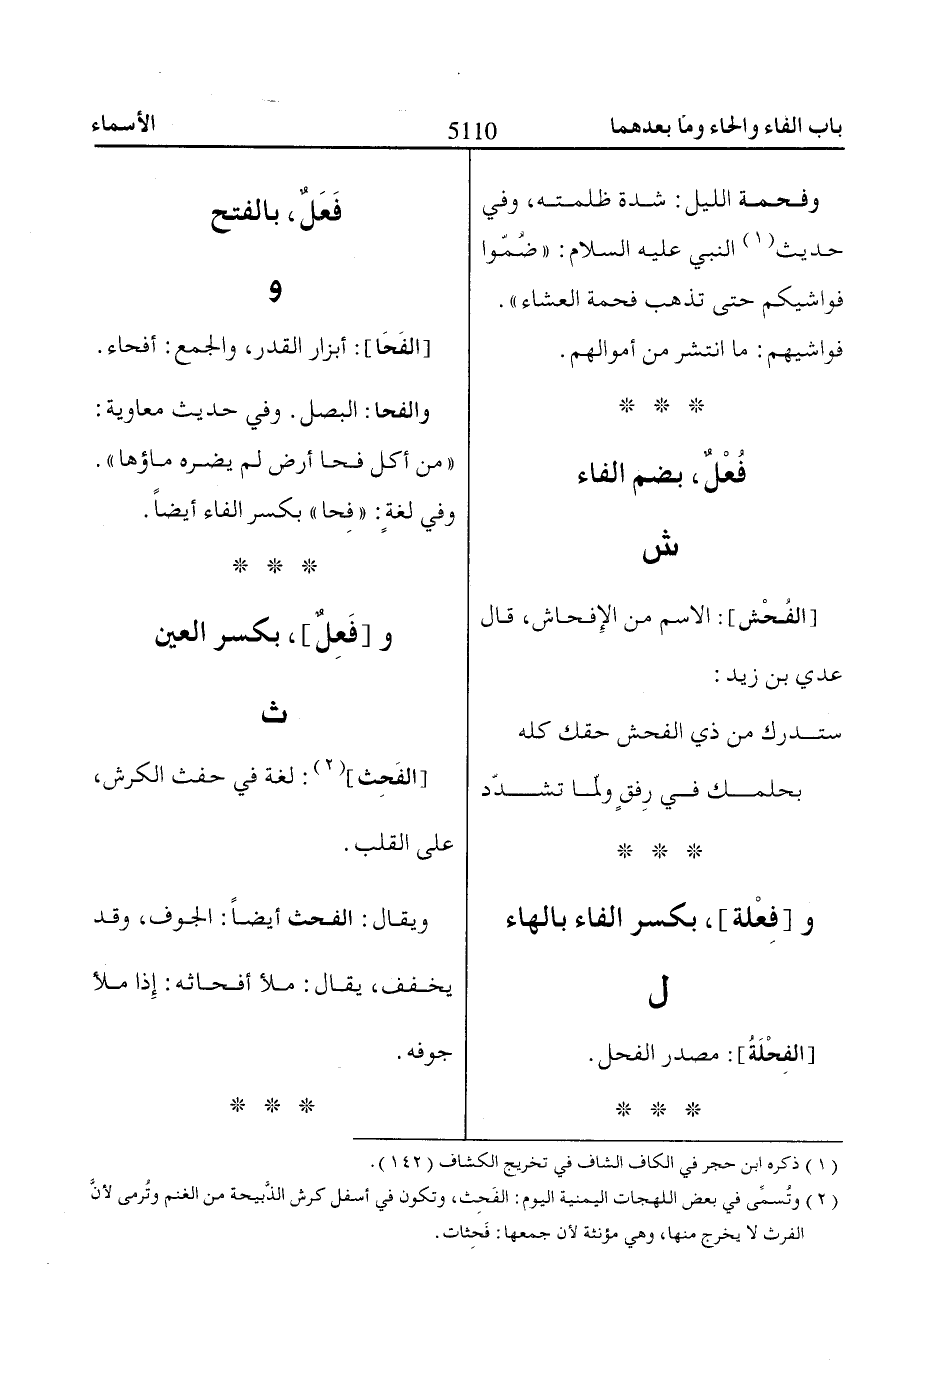 باب الفاء والحاء وما بعدهما
5110
الأسماء
وفحمة الليل: شدة ظلمته، وفي
حديث(١) النبي عليه السلام: «ضُمّوا
فواشيكم حتى تذهب فحمة العشاء».
فواشيهم: ما انتشر من أموالهم.
* * *
فُعْلٌ، بضم الفاء
ش
[الفُحْش]: الاسم من الإفحاش، قال
عدي بن زيد:
ستدرك من ذي الفحش حقك كله
بحلمك في رفقٍ ولمّا تشدّد
* * *
و [فِعْلة]، بكسر الفاء بالهاء
ل
[الفِحْلَةُ]: مصدر الفحل.
* * *
فَعَلٌ، بالفتح
و
[الفَحَا]: أبزار القدر، والجمع: أفحاء.
والفحا: البصل. وفي حديث معاوية:
«من أكل فحا أرض لم يضره ماؤها».
وفي لغةٍ: «فِحا» بكسر الفاء أيضاً.
* * *
و [فَعِلٌ]، بكسر العين
ث
[الفَحِث](٢): لغة في حفث الكرش،
على القلب.
ويقال: الفحث أيضاً: الجوف، وقد
يخفف، يقال: ملأ أفحاثه: إذا ملأ
جوفه.
* * *
(١) ذكره ابن حجر في الكاف الشاف في تخريج الكشاف (١٤٢).
(٢) وتُسمَّى في بعض اللهجات اليمنية اليوم: الفَحِث، وتكون في أسفل كرش الذَّبيحة من الغنم وتُرمى لأنَّ
الفرث لا يخرج منها، وهي مؤنثة لأن جمعها: فَحِثات.